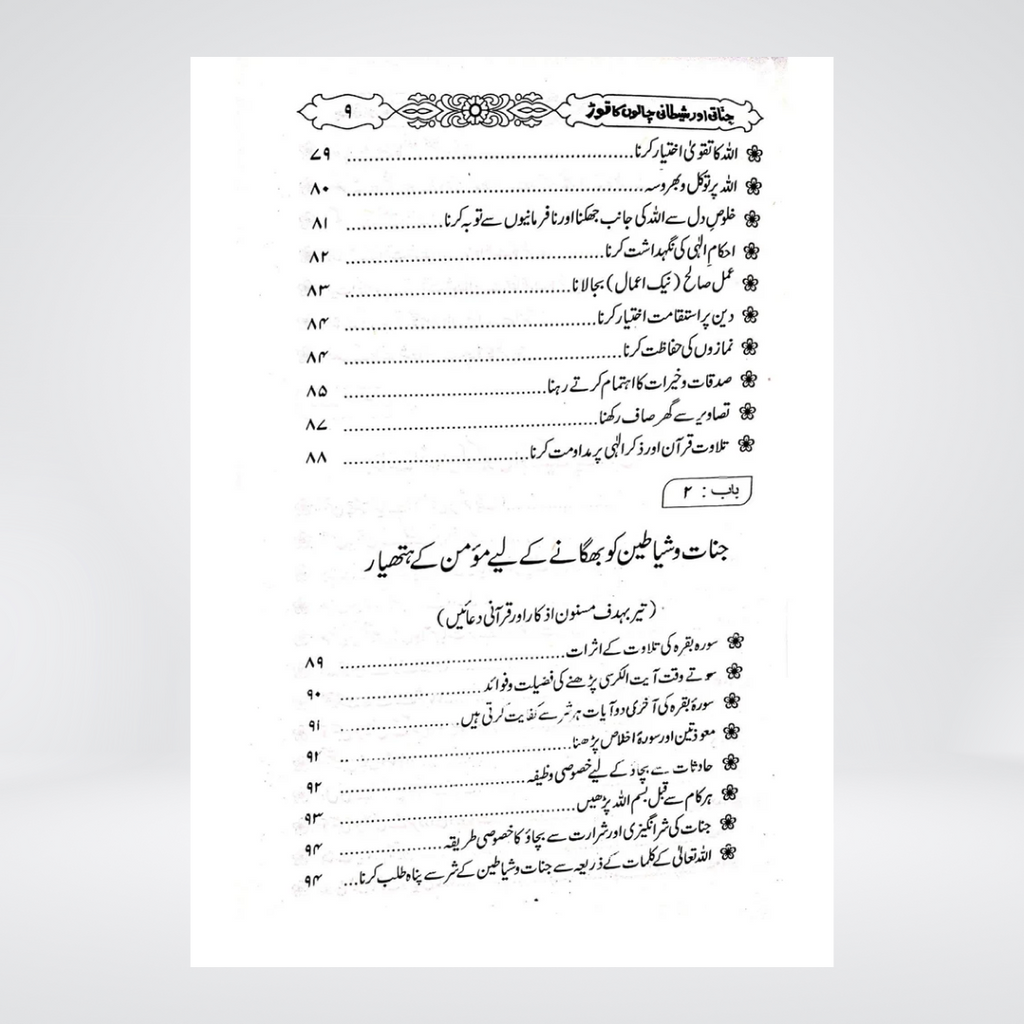 جناتی اور شیطانی چالوں کا توڑ ۹
اللہ کا تقویٰ اختیار کرنا ۷۹
اللہ پر توکل و بھروسہ ۸۰
خلوصِ دل سے اللہ کی جانب جھکنا اور نافرمانیوں سے توبہ کرنا ۸۱
احکامِ الٰہی کی نگہداشت کرنا ۸۲
عمل صالح (نیک اعمال) بجالانا ۸۳
دین پر استقامت اختیار کرنا ۸۴
نمازوں کی حفاظت کرنا ۸۴
صدقات وخیرات کا اہتمام کرتے رہنا ۸۵
تصاویر سے گھر صاف رکھنا ۸۷
تلاوت قرآن اور ذکر الٰہی پر مداومت کرنا ۸۸
باب : ۲
جنات وشیاطین کو بھگانے کے لیے مؤمن کے ہتھیار
(تیر بہدف مسنون اذکار اور قرآنی دعائیں)
سورہ بقرہ کی تلاوت کے اثرات ۸۹
سوتے وقت آیت الکرسی پڑھنے کی فضیلت وفوائد ۹۰
سورۂ بقرہ کی آخری دو آیات ہر شر سے کفایت کرتی ہیں ۹۱
معوذتین اور سورۂ اخلاص پڑھنا ۹۲
حادثات سے بچاؤ کے لیے خصوصی وظیفہ ۹۲
ہر کام سے قبل بسم اللہ پڑھیں ۹۳
جنات کی شر انگیزی اور شرارت سے بچاؤ کا خصوصی طریقہ ۹۴
اللہ تعالیٰ کے کلمات کے ذریعہ سے جنات وشیاطین کے شر سے پناہ طلب کرنا ۹۴